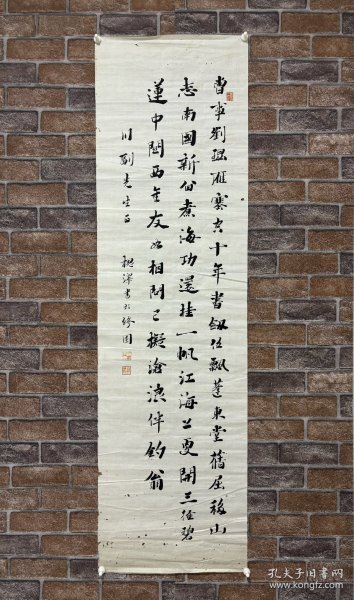 曾事劉琨雁塞空十年書劍任飄蓬東堂舊屈移山
志南國新留煮海功還挂一帆江海上更開三徑碧
蓮中關西舊友如相問已擬滄浪伴釣翁
川劉先生正
孔夫子旧书网
www.kongfz.com